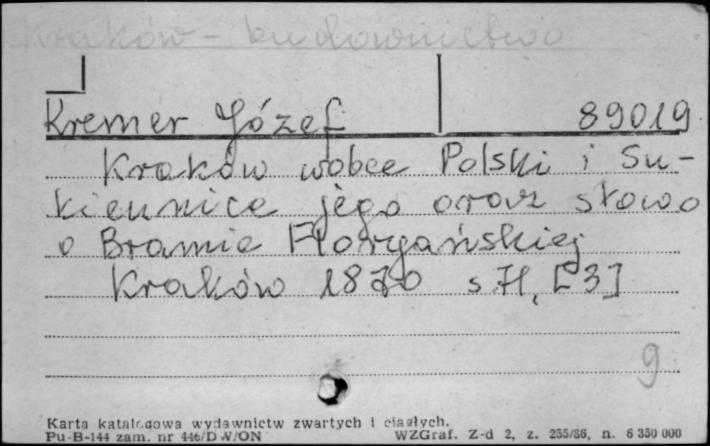 Kraków - budownictwo
Kremer Józef 89019
Kraków wobec Polski i Su-
kiennice jego oraz słowo
o Bramie Floryańskiej
Kraków 1870 s 71, [3]
9
Karta katalogowa wydawnictw zwartych i ciągłych.
Pu-B-144 zam. nr 446/D W/ON WZGraf. Z-d 2, z. 255/86, n. 6 350 000